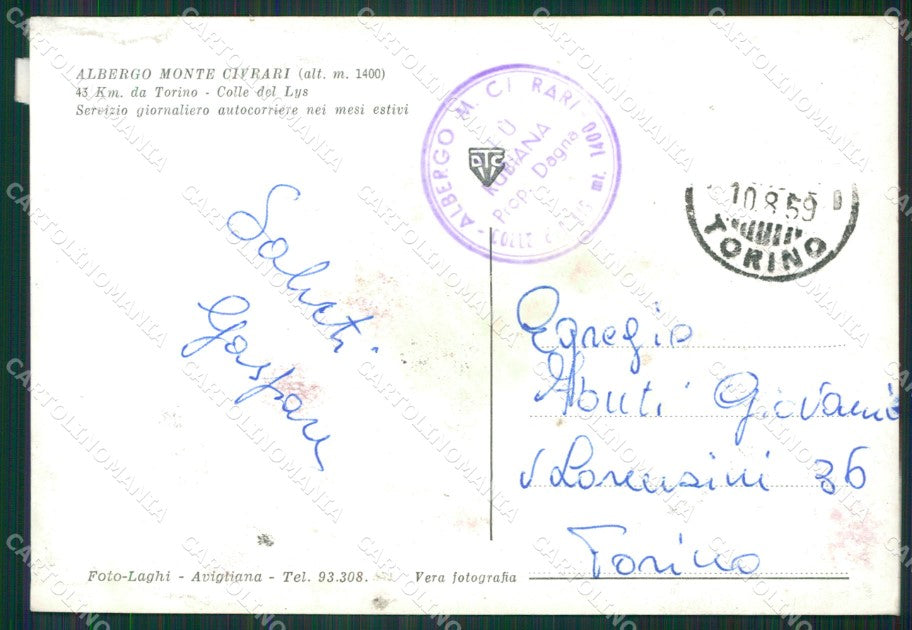 ALBERGO MONTE CIVRARI (alt. m. 1400)
43 Km. da Torino - Colle del Lys
Servizio giornaliero autocorriere nei mesi estivi
ALBERGO M. CI RARI - 1400 mt.
RUBIANA
Prop. Dagna
10.8.59
TORINO
Saluti
Gaspare
Egregio
Monti Giovanni
V Lorenzini 36
Torino
Foto-Laghi - Avigliana - Tel. 93.308.
Vera fotografia
CARTOLINOMANIA